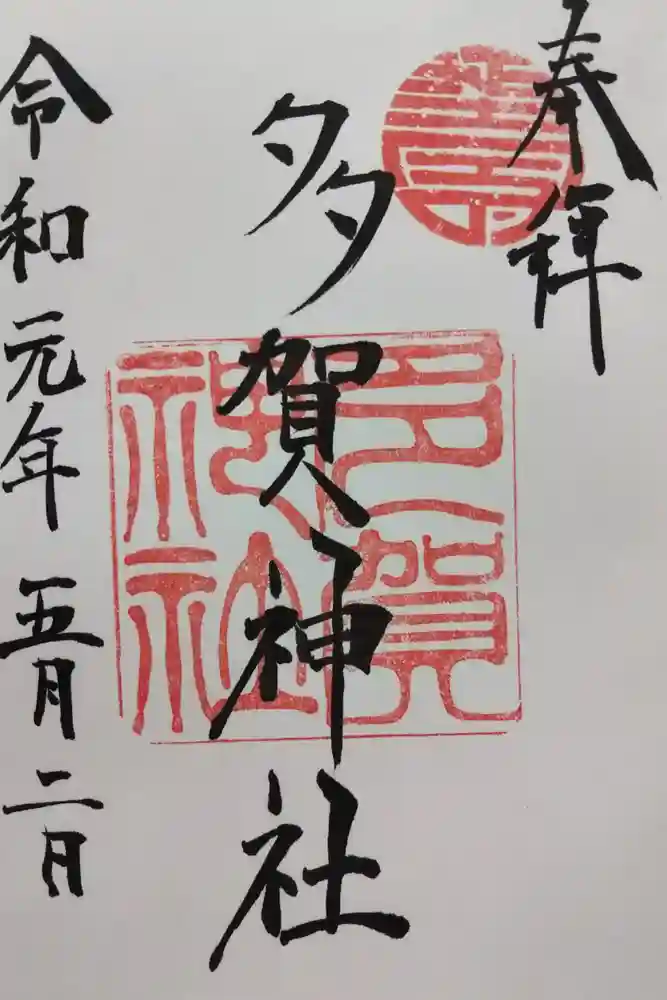 奉拝
多賀神社
令和元年五月二日
多賀神社